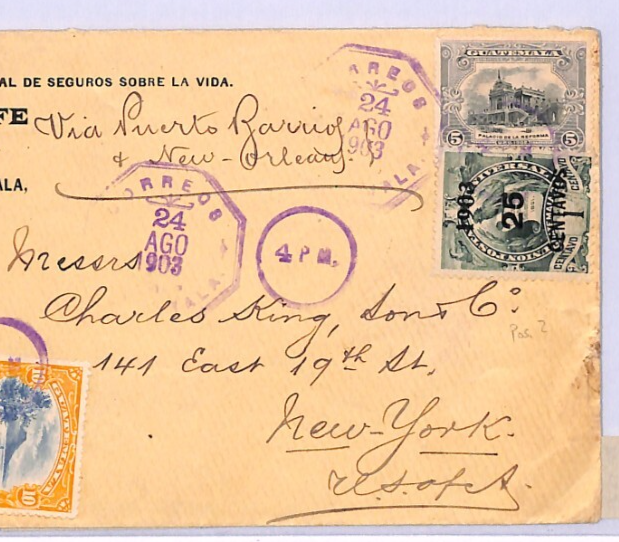 AL DE SEGUROS SOBRE LA VIDA.
FE
ALA,
Via Puerto Barrios
& New-Orleans.
CORREOS
24
AGO
903
ALA.
GUATEMALA
5 PALACIO DE LA REFORMA 5
CORREOS
24
AGO
1903
ALA.
4 P M.
1903
25
CENTAVOS
1
UNION POSTAL UNIVERSAL
CENTAVO
CENTAVO
Messrs
Charles King, Sons Co.
141 East 19th St.
New-York.
U.S. of A.
Pos 2
10